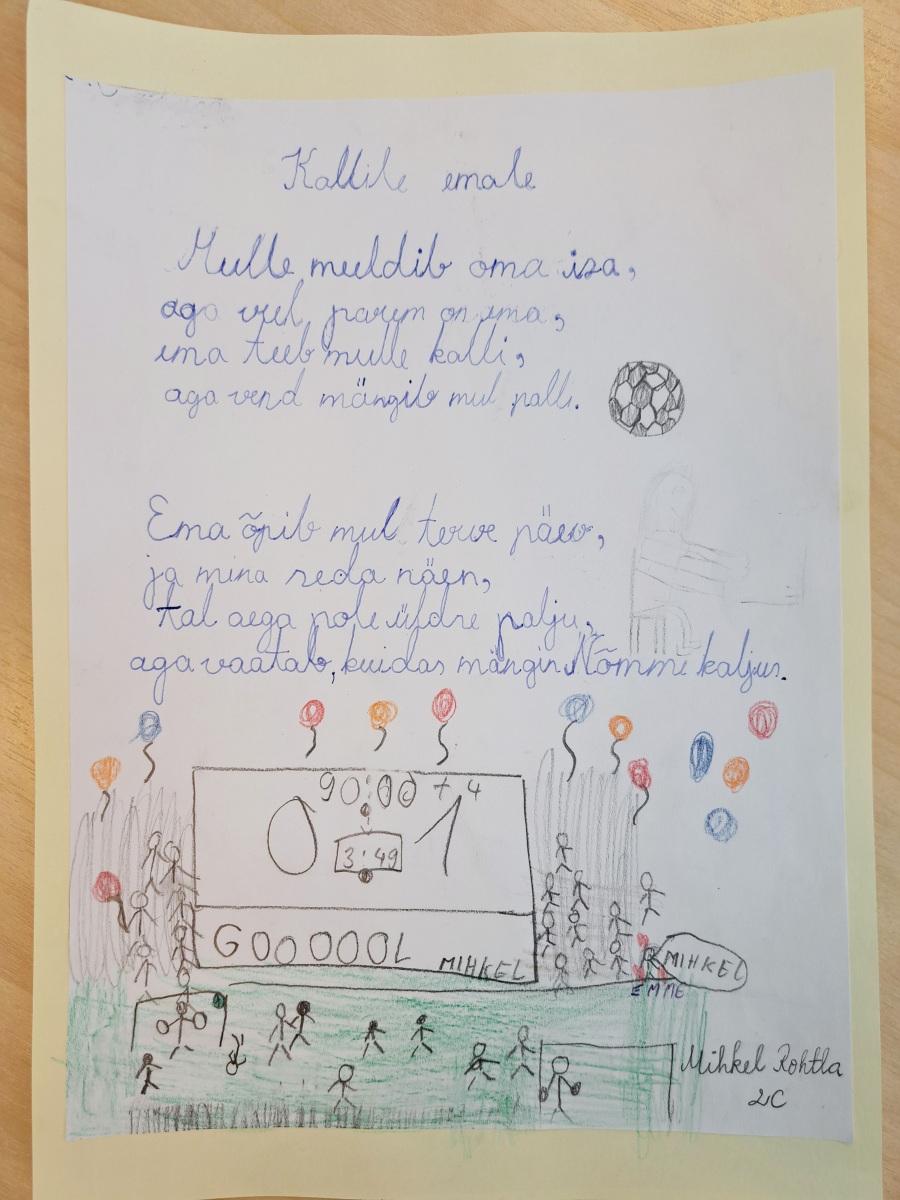 Kallile emale
Mulle muldib oma isa,
aga veel parem on ema,
ema teeb mulle kalli,
aga vend mängib mul palli.
Ema õpib mul terve päev,
ja mina seda näen,
tal aega pole üldse palju,
aga vaatab, kuidas mängin Nõmme kaljus.
90:00 + 4
0 1
3:49
GOOOOOL
MIHKEL
MIHKEL
EMME
Mihkel Rohtla
2C